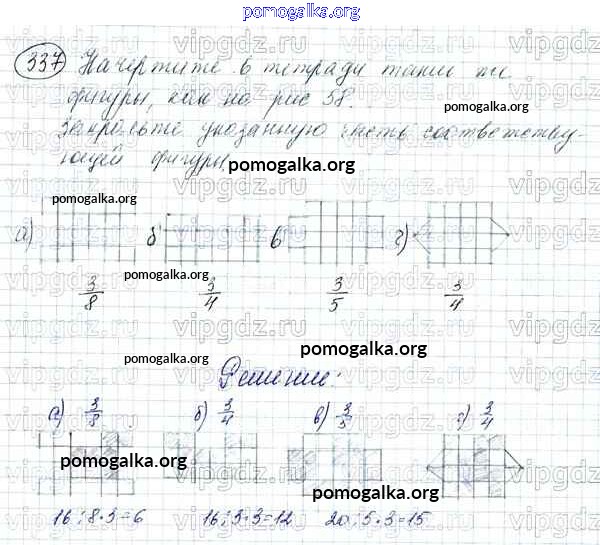 pomogalka.org
337 Начертите в тетради такие же
фигуры, как на рис 58.
Закрасьте указанную часть соответству-
ющей фигуры.
pomogalka.org
pomogalka.org
а) б в г)
pomogalka.org
3/8 3/4 3/5 3/4
pomogalka.org
pomogalka.org
Решение:
а) 3/8 б) 3/4 в) 3/5 г) 3/4
pomogalka.org
pomogalka.org
16:8·3=6 16:3·3=12 20:5·3=15
vipgdz.ru